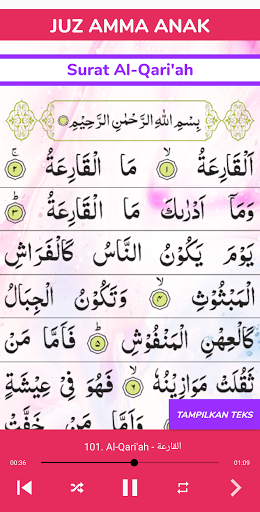 JUZ AMMA ANAK
Surat Al-Qari'ah
بِسْمِ اللهِ الرَّحْمٰنِ الرَّحِيْمِ
اَلْقَارِعَةُ ۙ ١ مَا الْقَارِعَةُ ۚ ٢
وَمَآ اَدْرٰىكَ مَا الْقَارِعَةُ ۗ ٣
يَوْمَ يَكُوْنُ النَّاسُ كَالْفَرَاشِ
الْمَبْثُوْثِ ۙ ٤ وَتَكُوْنُ الْجِبَالُ
كَالْعِهْنِ الْمَنْفُوْشِ ۗ ٥ فَاَمَّا مَنْ
ثَقُلَتْ مَوَازِيْنُهٗ ۙ ٦ فَهُوَ فِيْ عِيْشَةٍ
وَاَمَّا مَنْ خَفَّتْ
TAMPILKAN TEKS
101. Al-Qari'ah - القارعة
00:36
01:09